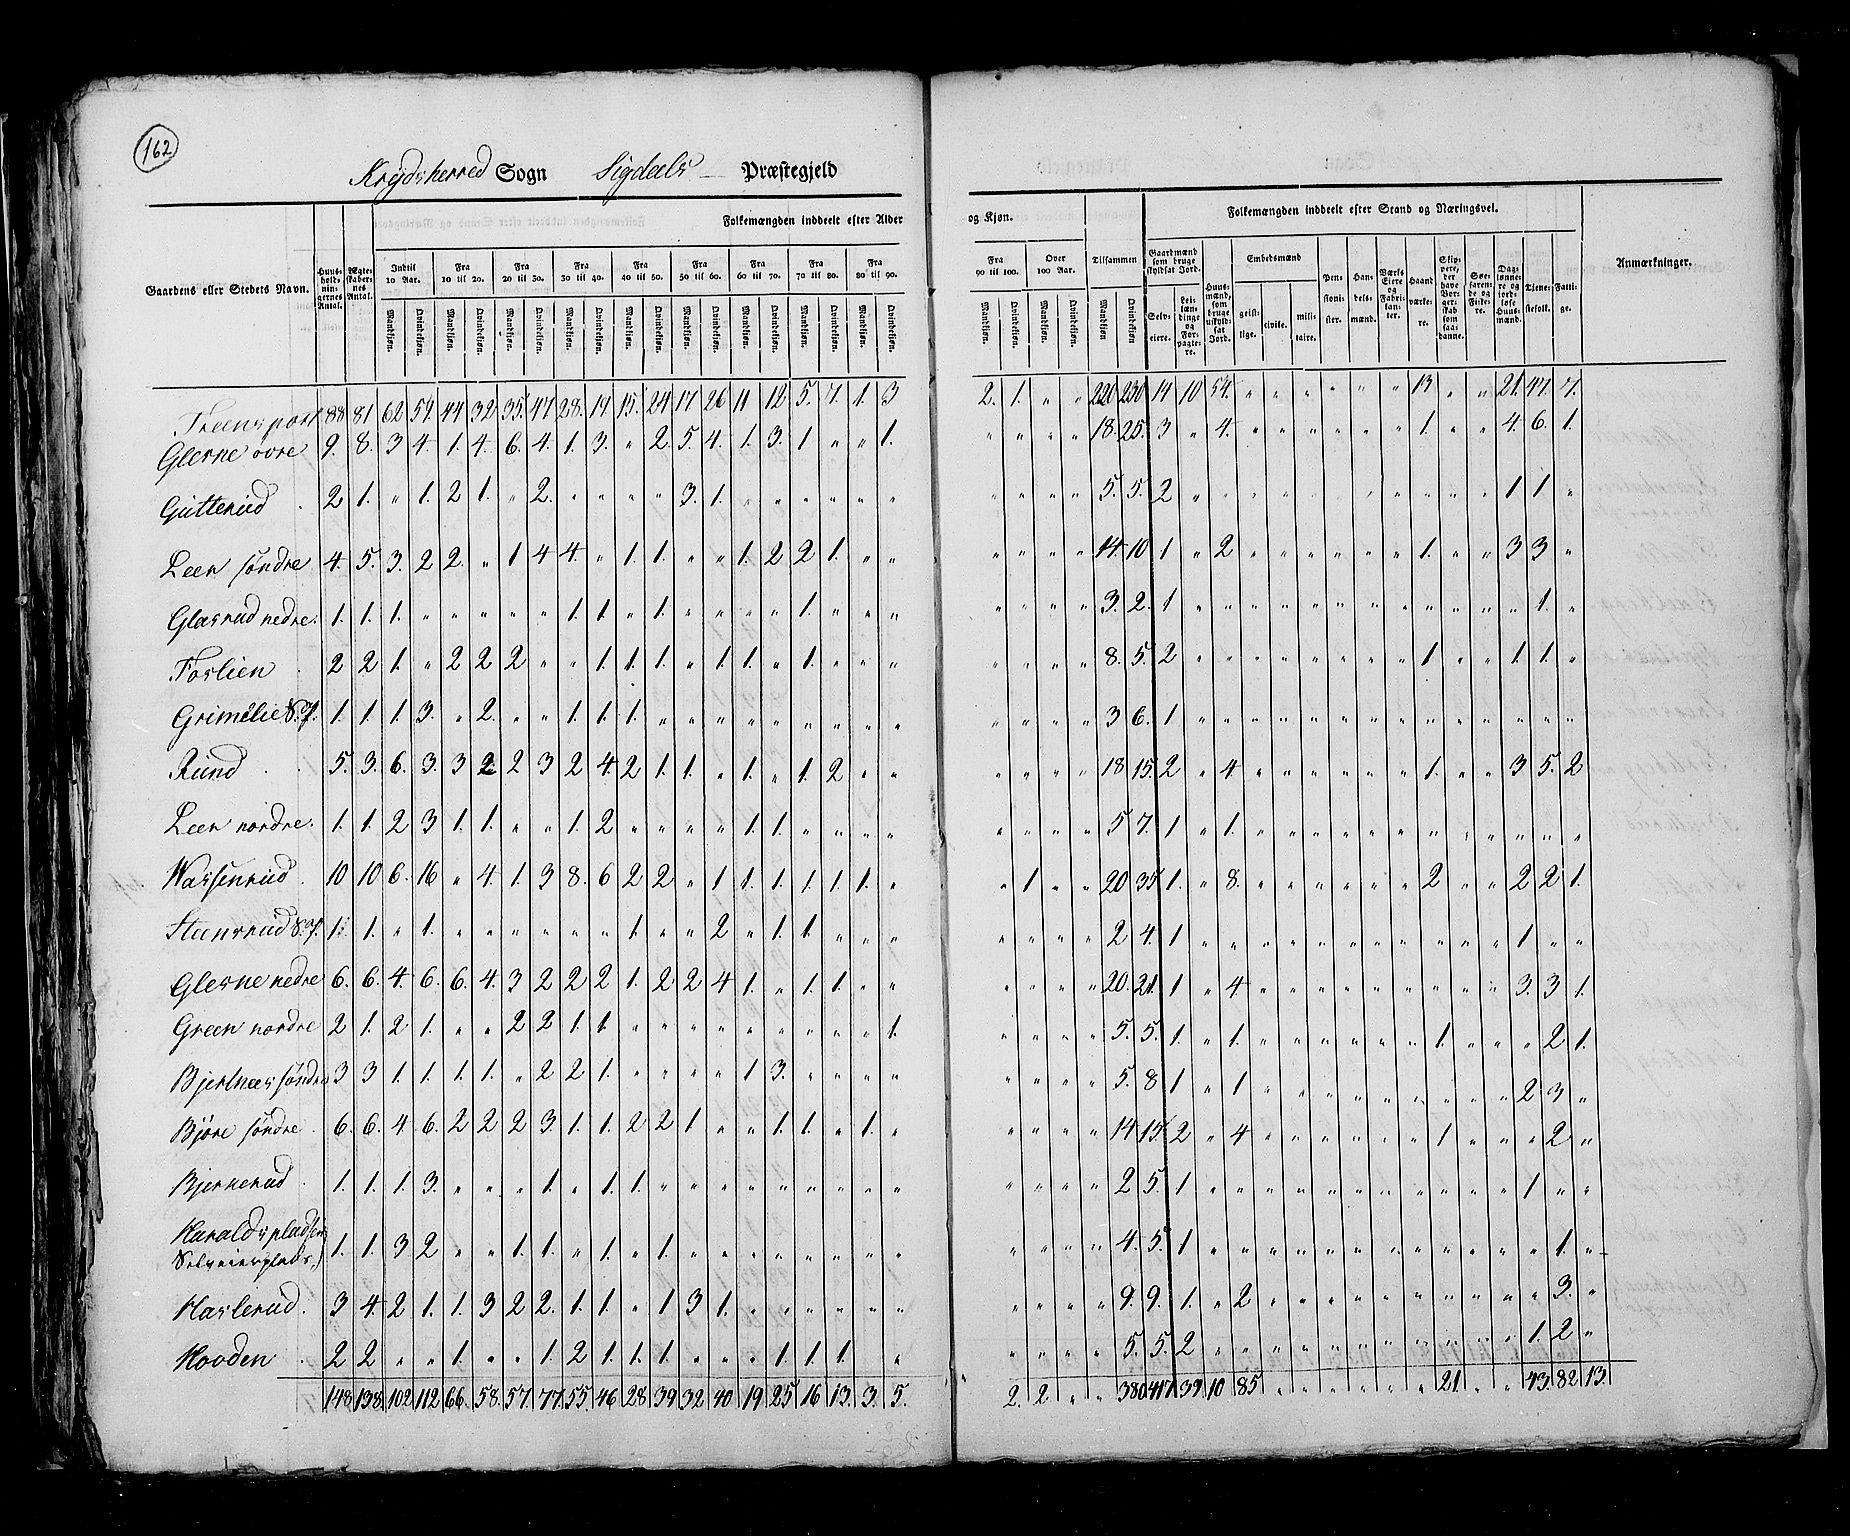 162
Krydsherred Sogn Sigdals Præstegjeld
Gaardens eller Stedets Navn.
Huusholdningernes Antal.
Ægteskabernes Antal.
Folkemængden inddeelt efter Alder og Kjøn.
Indtil 10 Aar. Fra 10 til 20. Fra 20 til 30. Fra 30 til 40. Fra 40 til 50. Fra 50 til 60. Fra 60 til 70. Fra 70 til 80. Fra 80 til 90. Fra 90 til 100. Over 100 Aar. Tilsammen
Mandkiøn. Qvindekiøn. Mandkiøn. Qvindekiøn. Mandkiøn. Qvindekiøn. Mandkiøn. Qvindekiøn. Mandkiøn. Qvindekiøn. Mandkiøn. Qvindekiøn. Mandkiøn. Qvindekiøn. Mandkiøn. Qvindekiøn. Mandkiøn. Qvindekiøn. Mandkiøn. Qvindekiøn. Mandkiøn. Qvindekiøn. Mandkiøn Qvindekiøn
Folkemængden inddeelt efter Stand og Næringsvei.
Gaardmænd som bruge skyldsat Jord.
Selveiere. Leilændinge og Forpagtere.
Huusmænd, som bruge uskyldsat Jord.
Embedsmænd
geistlige. civile. militaire.
Pensionister.
Handelsmænd.
Værks Eiere og Fabrikanter.
Haandværkere.
Skippere, der have Borgerskab som saadanne.
Søefarende og Fiskere.
Daglønnere og jordløse Huusmænd.
Tjenestefolk.
Fattige.
Anmærkninger.
Transport 88 81 62 54 44 32 35. 47 28. 19 15. 24 17 26 11 12 5. 7. 1. 3 2. 1. " " 220 230 14 10 54. " " " " " " 13 " " 21. 47. 7.
Glesne øvre 9. 8. 3 4. 1. 4. 6. 4. 1. 3. " 2. 5. 4. 1. 3. 1 " " 1. " " " " 18. 25. 3 " 4. " " " " " " 1. " " 4. 6. 1.
Gutterud 2 1. " 1. 2 1. " 2. " " " " 3. 1. " " " " " " " " " " 5. 5. 2 " " " " " " " " " " " 1 1 "
Leen søndre 4. 5. 3. 2 2. " 1 4 4. " 1. 1. " " 1. 2 2 1. " " " " " " 14. 10 1 " 2 " " " " " " 1. " " 3 3 "
Glasrud nedre. 1. 1. 1. " " " " " 1. 1. " 1. " " " " 1. " " " " " " " 3. 2. 1 " " " " " " " " " " " " 1. "
Foslien 2 2 1. " 2 2 2 " " 1. 1. 1. " 1. 1. " 1. " " " " " " " 8. 5. 2 " " " " " " " " 1 " " 1. 1. "
Grimelie 1. 1. 1. 3. " 2. " " 1. 1. 1. " " " " " " " " " " " " " 3 6. 1 " " " " " " " " " " " " " "
Ruud 5. 3. 6. 3. 3 2 2 3 2 4. 2 1. 1. " 1. " 1. 2 " " " " " " 18 15. 2 " 4 " " " " " " 1. " " 3 5. 2
Leen nordre. 1. 1. 2 3 1. 1. " " 1. 2 " " " " 1. 1. " " " " " " " " 5 7. 1 " 1. " " " " " " " " " " " "
Wassenrud. 10 10 6. 16 " 4. 1. 3 8. 6 2 2 " 1 1. 1. 1. 1. 1. " " 1 " " 20 35. 1. " 8. " " " " " " 2 " " 2 2 1.
1. 1. " 1. " " " " " " 1. " " 2 " 1. 1. " " " " " " " 2 4. 1 " " " " " " " " " " " 1 " "
Glesne nedre 6. 6. 4. 6. 6. 4. 3 2 2 2 1. 2 2 4 1. " 1. 1. " " " " " " 20. 21. 1 " 4 " " " " " " " " " 3. 3 1.
Green nordre 2 1. 2 1. " " 2 2 1. 1. " " " " " " " " " 1. " " " " 5. 5. 1. " 1. " " " " " " 1. " " " 2 1.
Bjertnæs søndre 3 3 1. 1. 1. 1. " 2 2 1. " " " " 1 3. " " " " " " " " 5. 8 1 " 1 " " " " " " " " " 2 3 "
Bjøre søndre. 6. 6. 4 6. 2 2 2 3 1. 1. 2 2 1 " " 1. 1. " 1. " " " " " 14 15. 2 " 4 " " " " " " 1 " " " 2 "
Bjerkerud 1. 1. 1 3. " " " 1. " 1. 1. " " " " " " " " " " " " " 2 5. 1 " " " " " " " " " " " 1 " "
Haraldspladsen
Selveierplads,) 1. 1. 3 2 " " 1. 1. " 1. " 1. " " " " " " " " " " " " 4. 5. 1 " " " " " " " " " " " " 1. "
Haslerud. 3 4. 2 1. 1. 3 2 2. 1. 1. " 1 3 1. " " " " " " " " " " 9. 9. 1. " 2 " " " " " " " " " " 3. "
Hovden 2 2 " " 1. " " 1. 2 1. 1. 1. " " " 1. 1. 1. " " " " " " 5. 5. 2 " " " " " " " " " " " 1. 2 "
148 138 102 112 66. 58. 57. 77. 55. 46 28 39 32 40 19 25 16 13. 3. 5. 2. 2. " " 380 417. 39 10 85 " " " " " " 21 " " 43. 82 13.